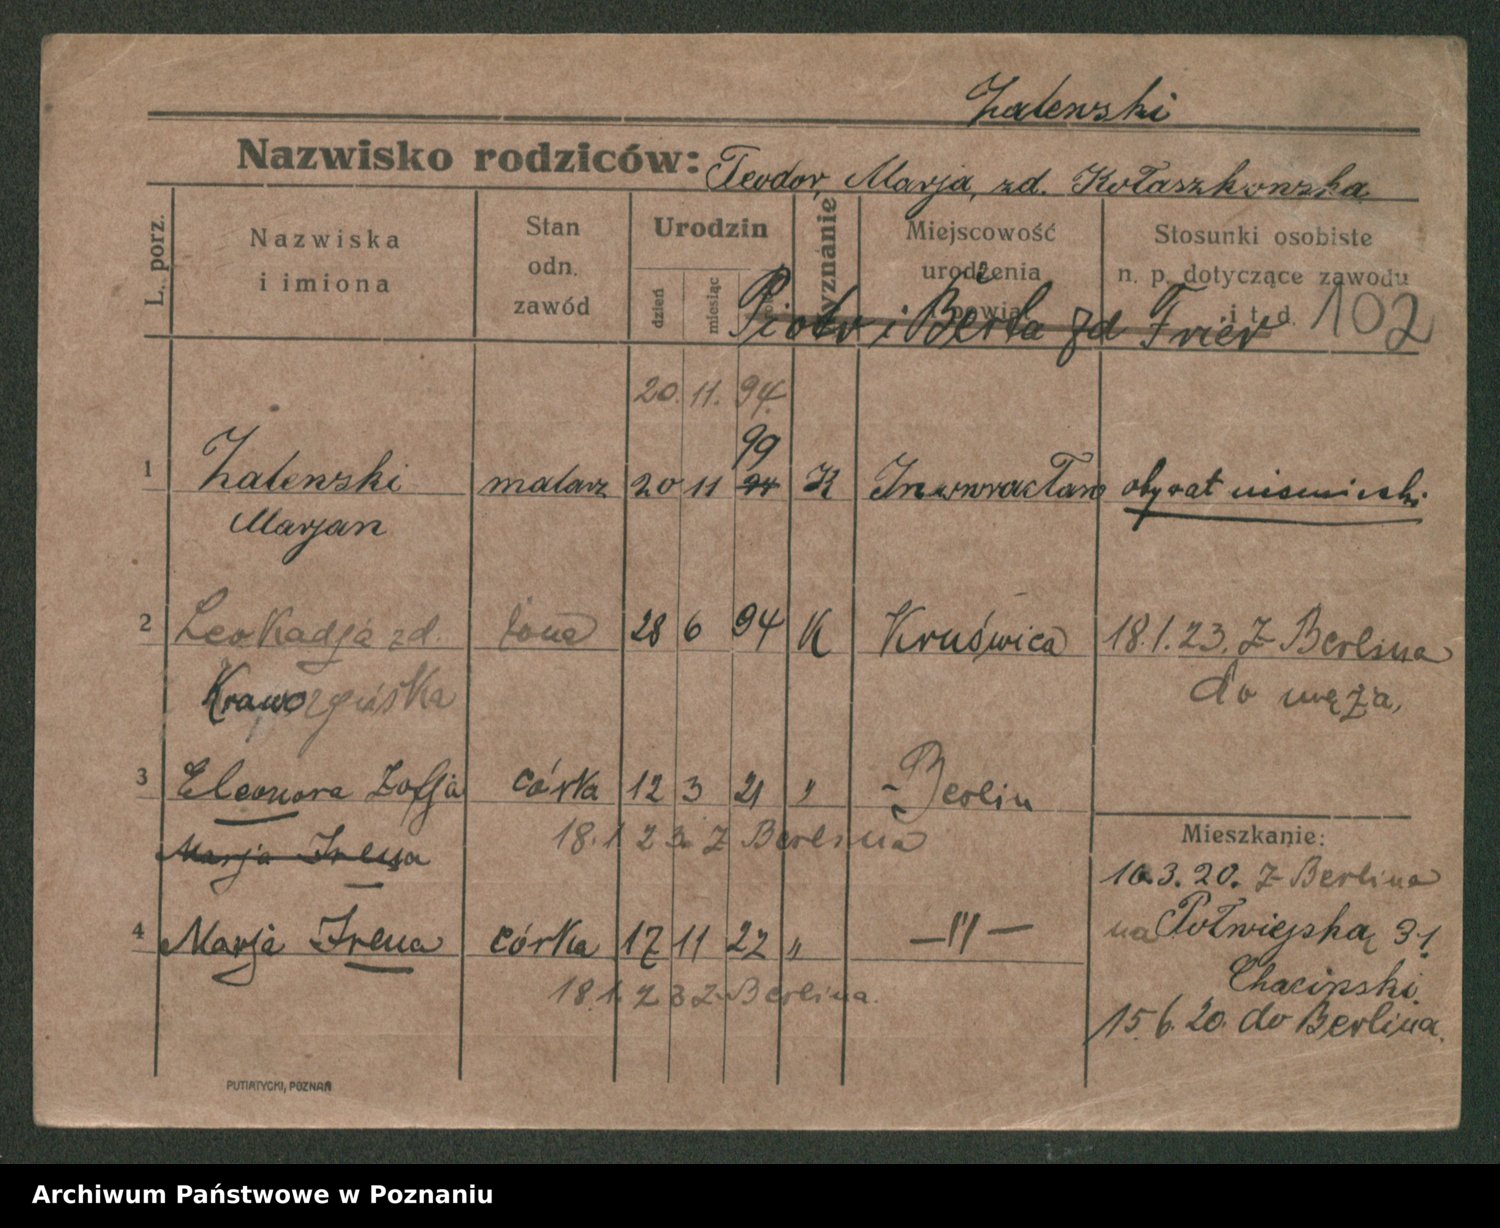 Zalewski
Nazwisko rodziców: Teodor, Marja, zd. Kołaszkowska
L. porz.
Nazwiska
i imiona
Stan
odn.
zawód
Urodzin
dzień
miesiąc
Wyznanie
Miejscowość
urodzenia
powiat
Stosunki osobiste
n. p. dotyczące zawodu
i t. d.
102
Piotr i Berta zd Frier
20. 11. 94.
99
1 Zalewski malarz 20 11 94 K Inowrocław obywat niemiecki
Marjan
2 Leokadja zd. żona 28 6 94 K Kruświca 18.1.23. z Berlina
do męża,
3 Eleonora Zofja córka 12 3 21 " - Berlin
18.1.23. z Berlina
Marja Irena
4 Marja Irena córka 17 11 22 " — " —
18.1.23 z Berlina.
Mieszkanie:
10.3.20. z Berlina
na Półwiejską 31
Chaciński
15.6.20. do Berlina.
PUTIATYCKI, POZNAŃ
Archiwum Państwowe w Poznaniu